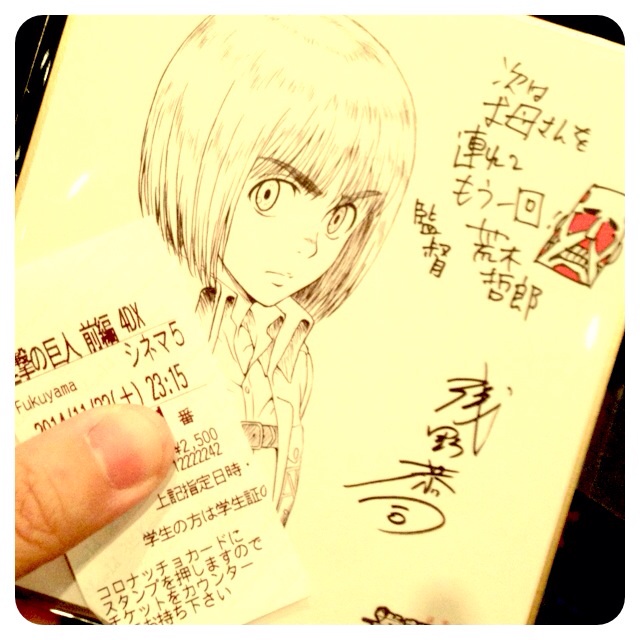 次は
お母さんを
連れて
もう一回
監督
荒木
哲郎
浅野恭司
撃の巨人 前編 4DX
シネマ5
Fukuyama
2014/11/22(土) 23:15
番
¥2,500
2222242
上記指定日時・
学生の方は学生証の
コロナッチョカードに
スタンプを押しますので
チケットをカウンター
お持ち下さい